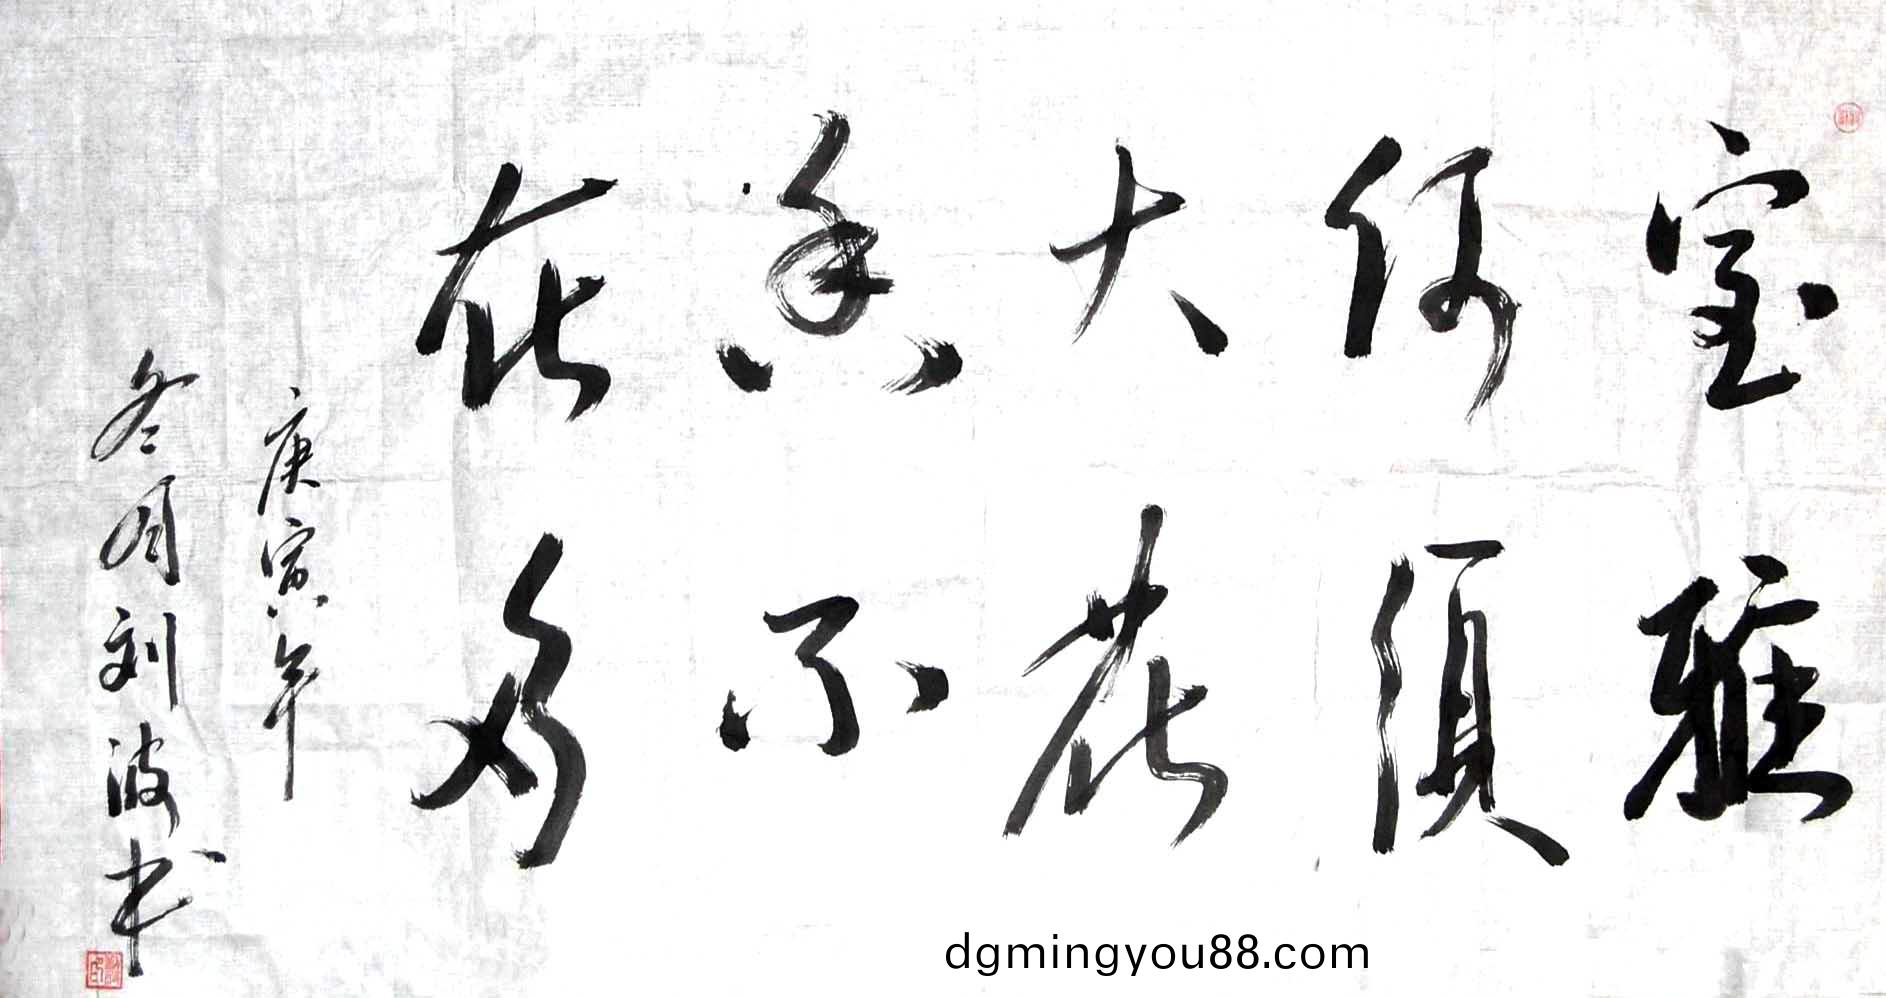 室雅
何須
大花
香不
在多
庚寅年
冬月刘波书
dgmingyou88.com